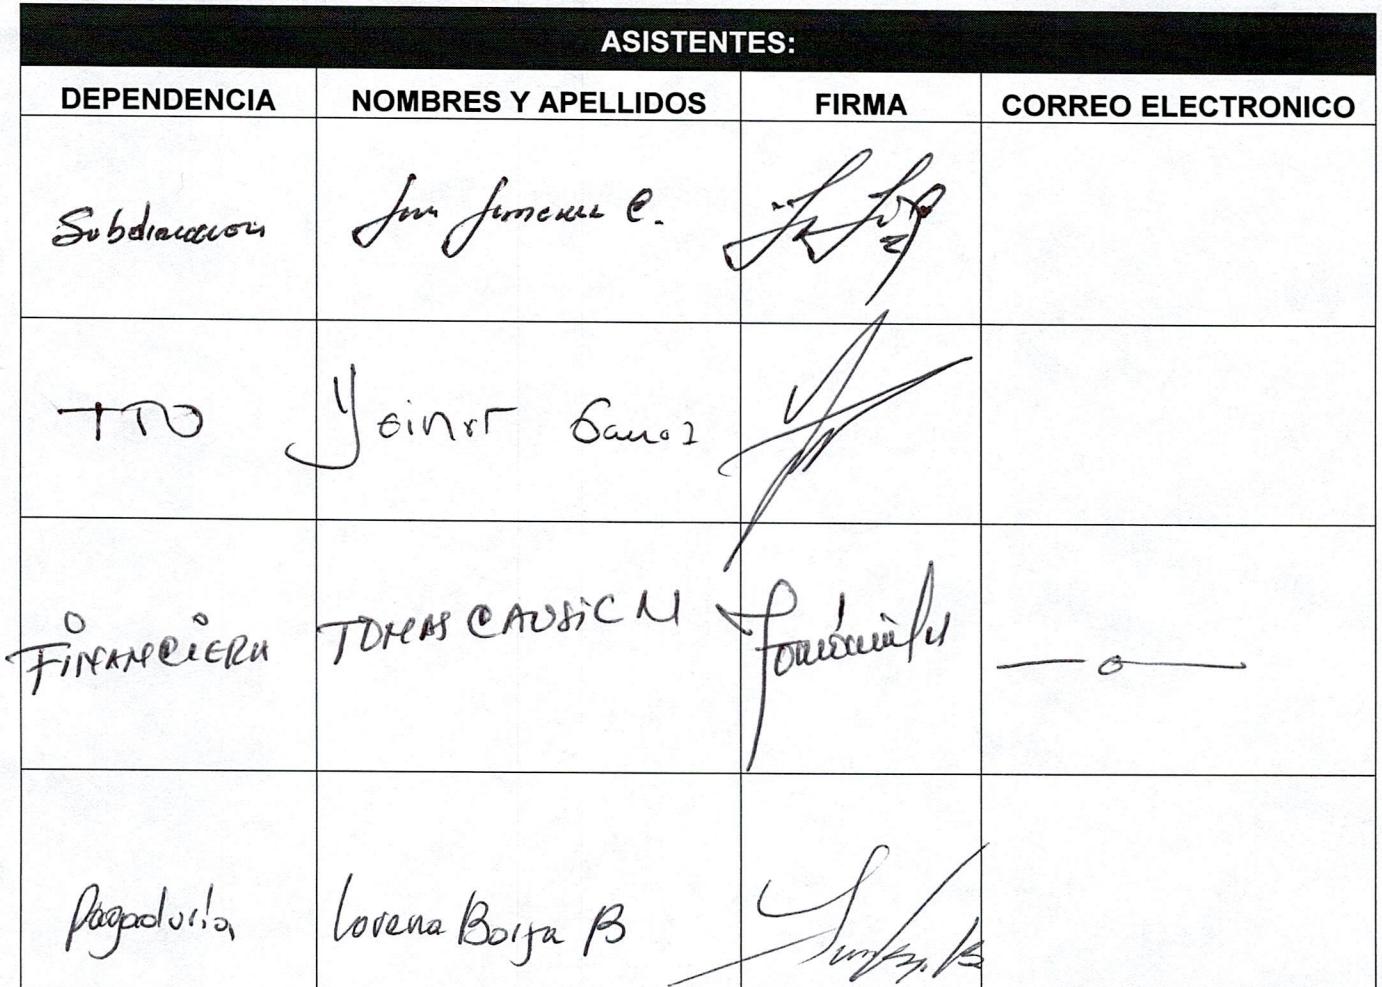 ASISTENTES:
DEPENDENCIA NOMBRES Y APELLIDOS FIRMA CORREO ELECTRONICO
Subdireccion Jimenez C.
TTO Yeinot
FINANCIERA TOMAS CAUSIC M
Pagaduria Lorena Borja B